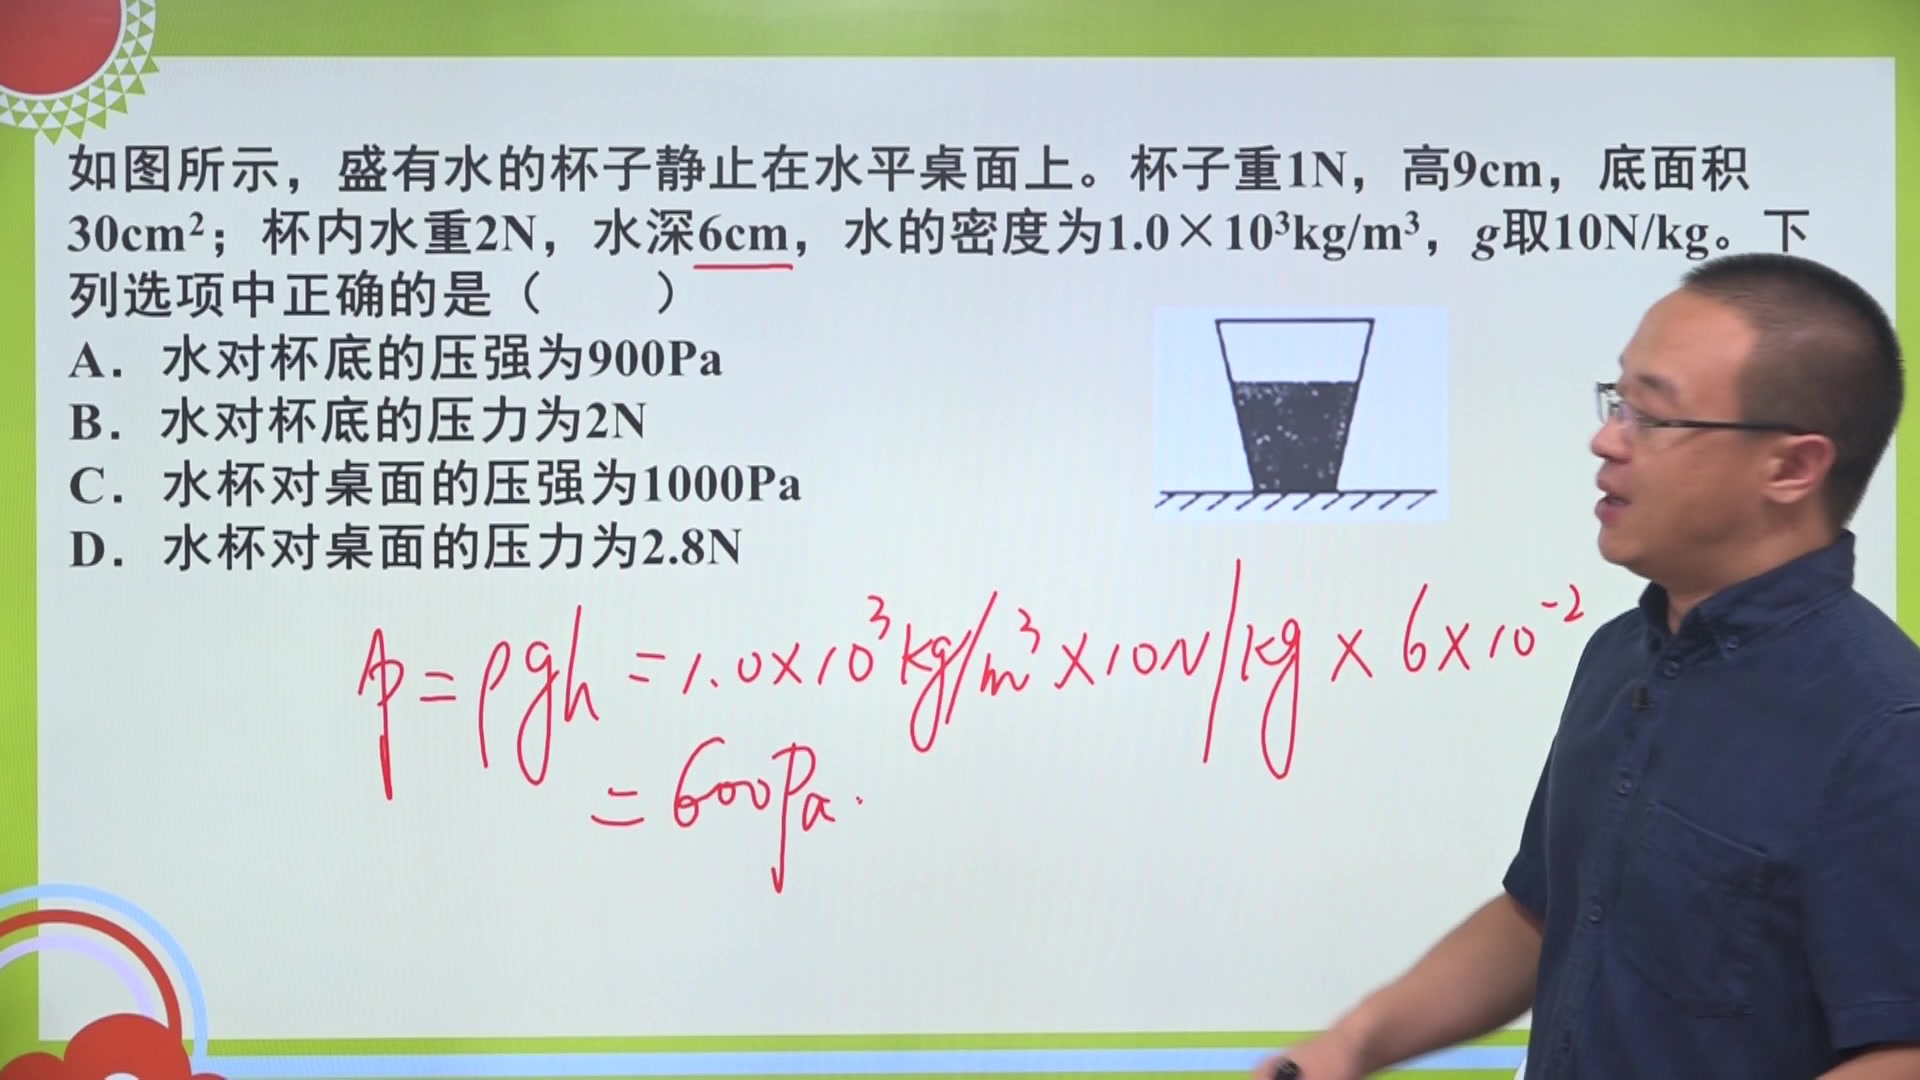 如图所示，盛有水的杯子静止在水平桌面上。杯子重1N，高9cm，底面积
30cm²；杯内水重2N，水深6cm，水的密度为1.0×10³kg/m³，g取10N/kg。下
列选项中正确的是（　　）
A．水对杯底的压强为900Pa
B．水对杯底的压力为2N
C．水杯对桌面的压强为1000Pa
D．水杯对桌面的压力为2.8N
p=ρgh=1.0×10³kg/m³×10N/kg×6×10⁻²
=600Pa.